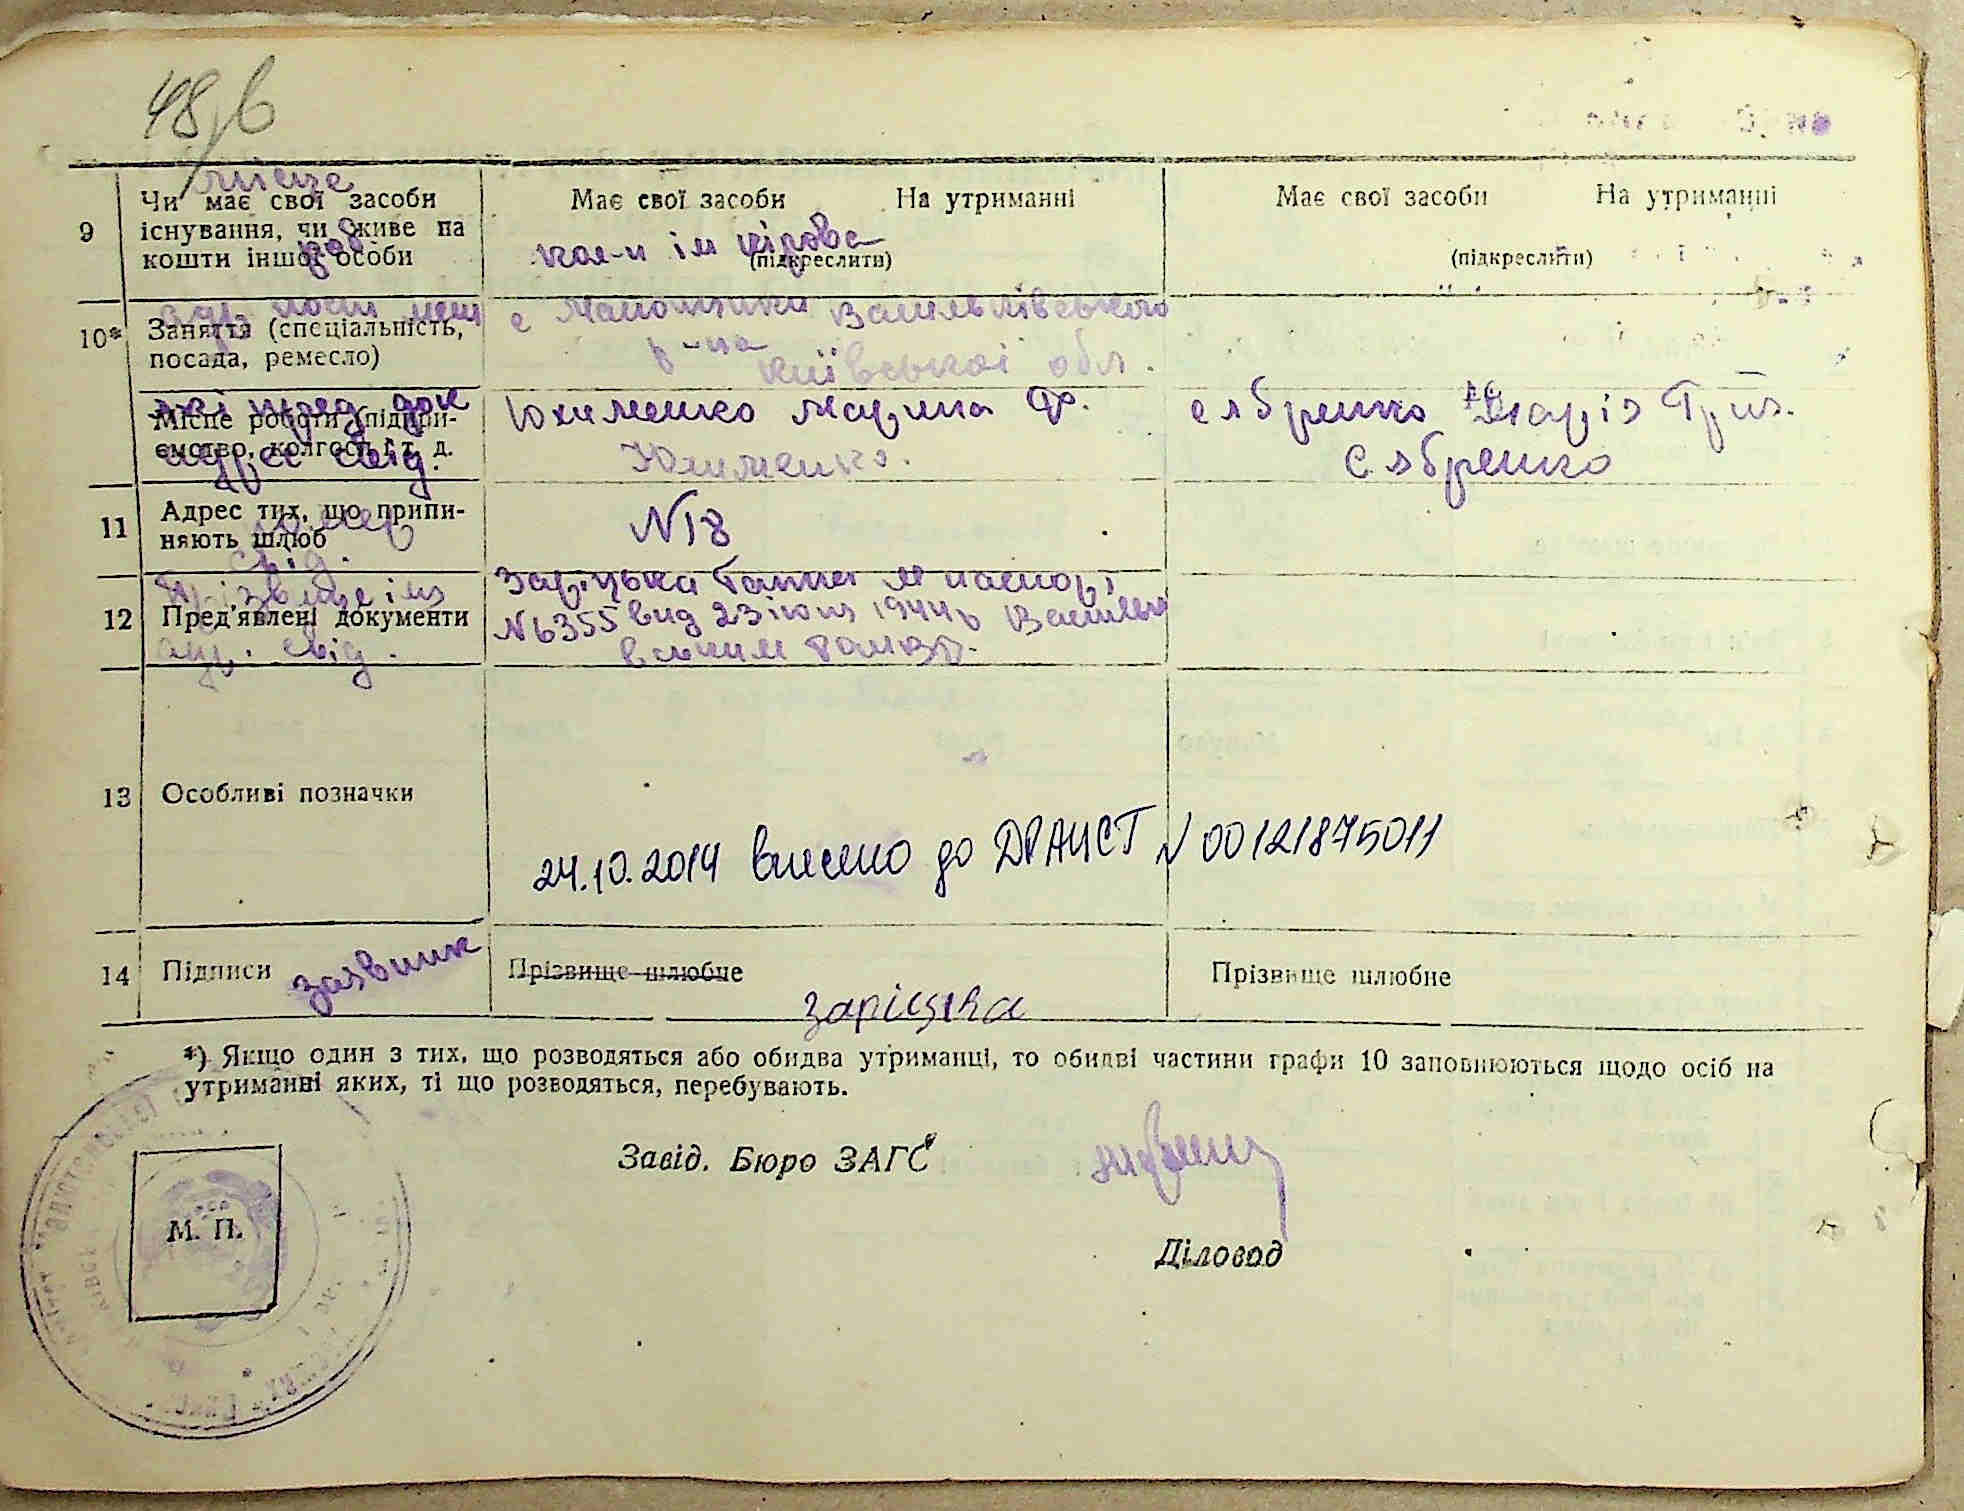 48
9
місце
Чи має свої засоби
існування, чи живе на
роб
кошти іншої особи
Має свої засоби На утриманні
кол-п ім кірова
(підкреслити)
Має свої засоби На утриманні
(підкреслити)
10*
адр
Заняття (спеціальність,
посада, ремесло)
с Мапочинки Васильківського
р-на
київської обл.
пред док
Місце роботи (підпри-
ємство, колгосп і т. д.
адрес свід.
Юхименко Марина Ф.
Юхименко.
Сябренко Марія Григ.
Сябренко
11
Адрес тих, що припи-
номер
няють шлюб
свід.
N18
12
Прізвище ім
Пред'явлені документи
адр. свід.
Заріцька Ганна М паспорт
N6355 вид 23 іюня 1944р Василь
13
Особливі позначки
24.10.2014 внесено до ДРАЦСГ N 00121875011
14
Підписи
заявник
Прізвище шлюбне
заріцька
Прізвище шлюбне
*) Якщо один з тих, що розводяться або обидва утриманці, то обидві частини графи 10 заповнюються щодо осіб на
утриманні яких, ті що розводяться, перебувають.
Завід. Бюро ЗАГС
М. П.
Діловод